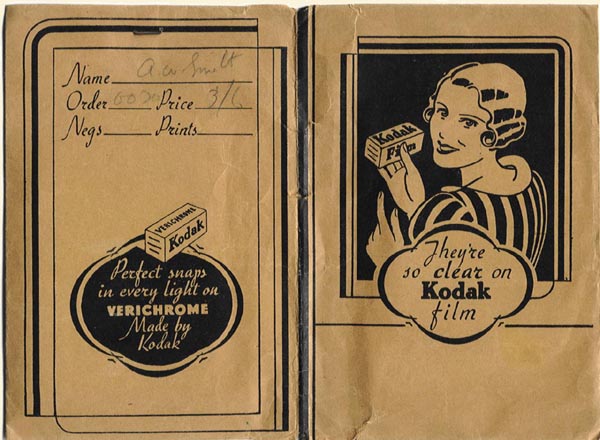 Name A. W. Smith
Order Price 3/6
Negs Prints
VERICHROME
Kodak
Perfect snaps
in every light on
VERICHROME
Made by
Kodak
Kodak
Film
They're
so clear on
Kodak
film